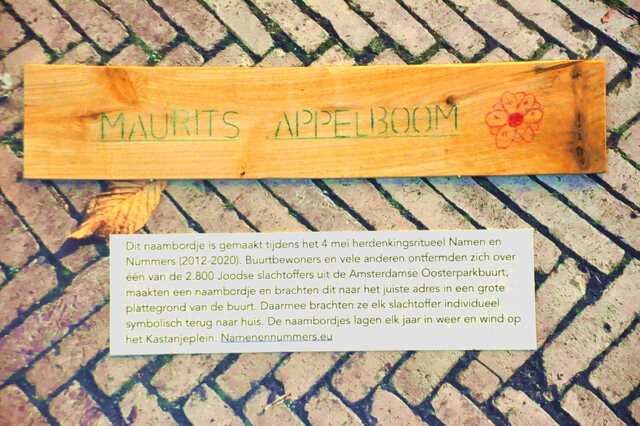 MAURITS APPELBOOM
Dit naambordje is gemaakt tijdens het 4 mei herdenkingsritueel Namen en
Nummers (2012-2020). Buurtbewoners en vele anderen ontfermden zich over
één van de 2.800 Joodse slachtoffers uit de Amsterdamse Oosterparkbuurt,
maakten een naambordje en brachten dit naar het juiste adres in een grote
plattegrond van de buurt. Daarmee brachten ze elk slachtoffer individueel
symbolisch terug naar huis. De naambordjes lagen elk jaar in weer en wind op
het Kastanjeplein. Namenennummers.eu